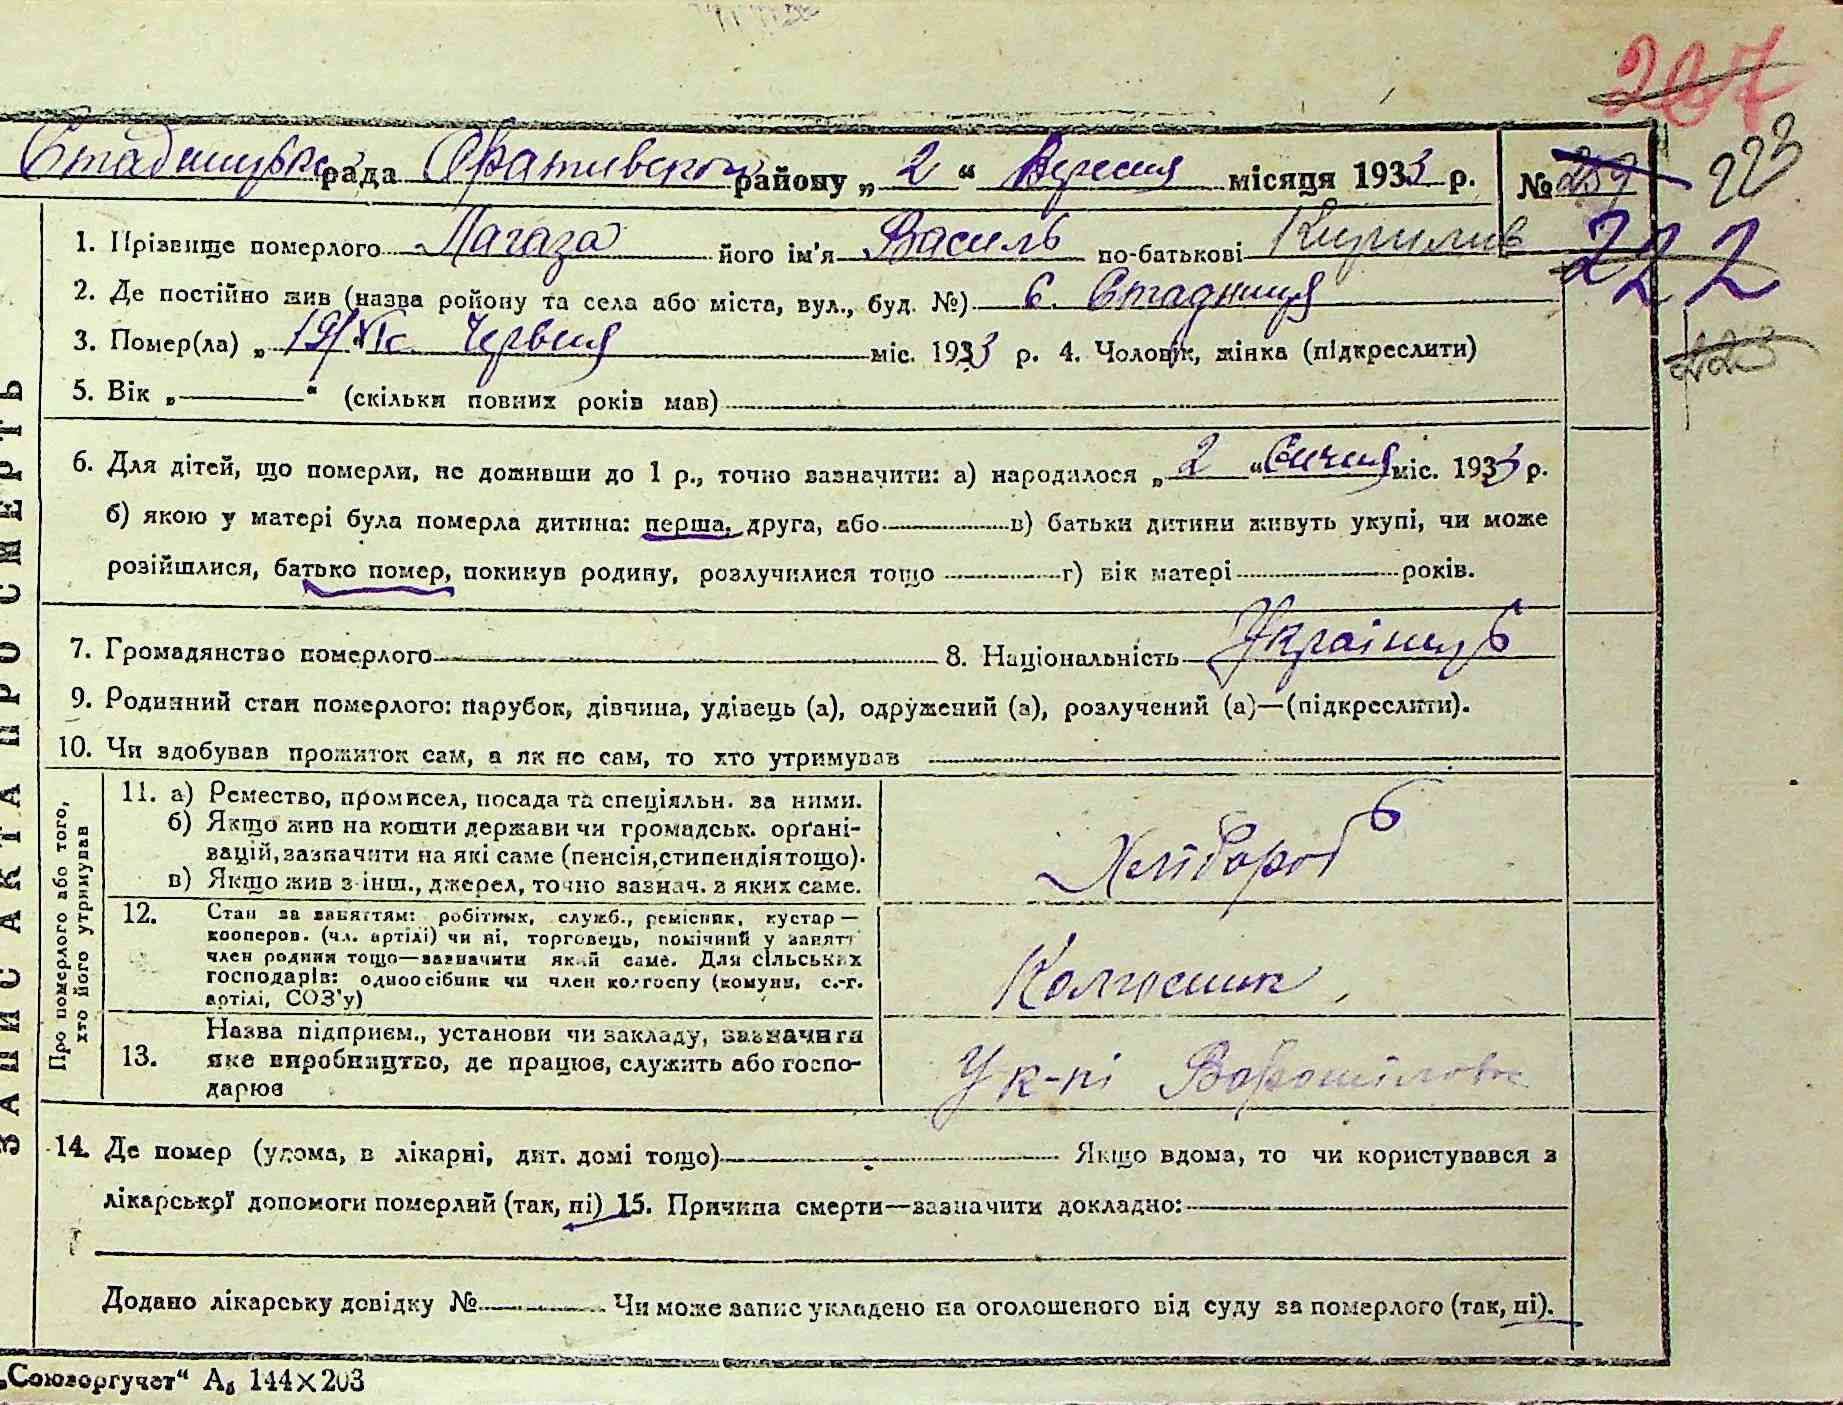 207
Стадницька рада Фратівського району „ 2 “ Вересня місяця 1933 р. № 259
223
1. Прізвище померлого Лагаза його ім'я Василь по-батькові Кирилив
222
2. Де постійно жив (назва ройону та села або міста, вул., буд. №) с. Стадниця
3. Помер(ла) „ 19/VIго “ Червня міс. 1933 р. 4. Чоловік, жінка (підкреслити)
223
5. Вік „ “ (скільки повних років мав)
6. Для дітей, що померли, не доживши до 1 р., точно зазначити: а) народилося „ 2 “ Січня міс. 1933 р.
б) якою у матері була померла дитина: перша, друга, або в) батьки дитини живуть укупі, чи може
розійшлися, батько помер, покинув родину, розлучилися тощо г) вік матері років.
7. Громадянство померлого 8. Національність Українць
9. Родинний стан померлого: парубок, дівчина, удівець (а), одружений (а), розлучений (а)—(підкреслити).
10. Чи здобував прожиток сам, а як не сам, то хто утримував
ЗАПИС АКТА ПРО СМЕРТЬ
Про померлого або того, хто його утримував
11. а) Ремество, промисел, посада та спеціяльн. за ними.
б) Якщо жив на кошти держави чи громадськ. орґані-
зацій, зазначити на які саме (пенсія, стипендія тощо).
в) Якщо жив з інш., джерел, точно зазнач. з яких саме.
Хлібороб
12. Стан за заняттям: робітник, служб., ремісник, кустар—
кооперов. (чл. артілі) чи ні, торговець, помічний у занятт
член родини тощо—зазначити який саме. Для сільських
господарів: одноосібник чи член колгоспу (комуни, с.-г.
артілі, СОЗ'у)
Колгосник
13. Назва підприєм., установи чи закладу, зазначити
яке виробництво, де працює, служить або госпо-
дарює
У к-пі Ворошілова
14. Де помер (удома, в лікарні, дит. домі тощо) Якщо вдома, то чи користувався з
лікарської допомоги померлий (так, ні) 15. Причина смерти—зазначити докладно:
Додано лікарську довідку № Чи може запис укладено на оголошеного від суду за померлого (так, ні).
„Союзоргучет“ А₅ 144×203